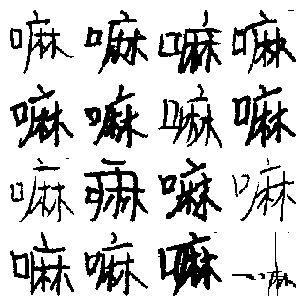 嘛嘛嘛嘛
嘛嘛嘛嘛
嘛嘛嘛嘛
嘛嘛嘛嘛